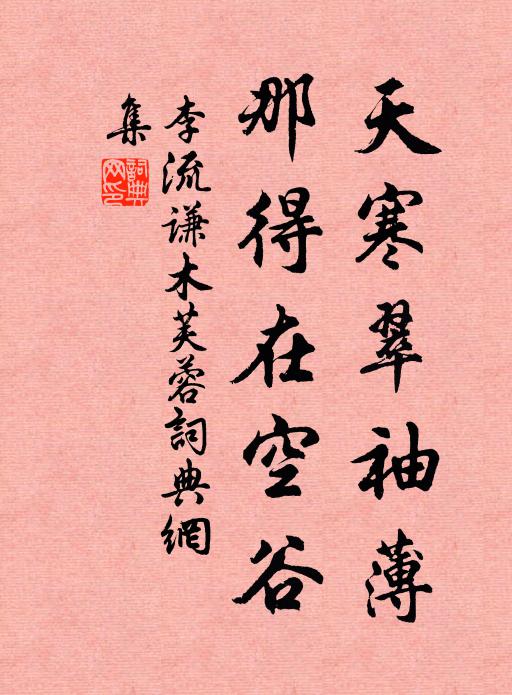 天寒翠袖薄
那得在空谷
李流謙木芙蓉詞典網
集
詞典
网印